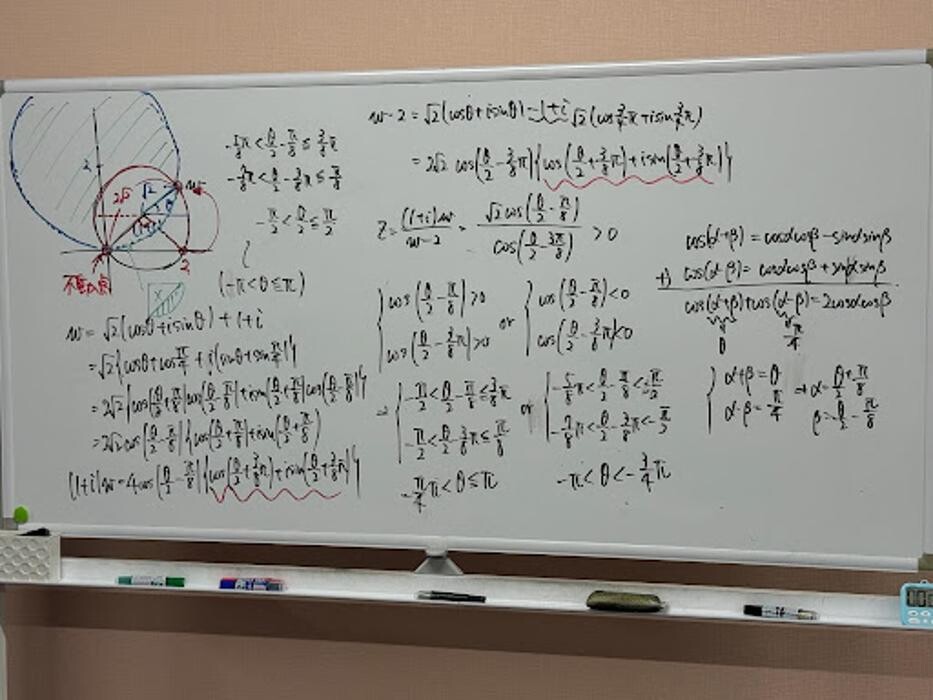 2
2√2
√2
w
θ
2
x
-5/8π < θ/2 - π/8 ≦ 3/8π
-7/8π < θ/2 - 3/8π ≦ π/8
-π/2 < θ/2 ≦ π/2
(-π < θ ≦ π)
w = √2(cosθ + isinθ) + 1+i
= √2{cosθ + cos π/4 + i(sinθ + sin π/4)}
= 2√2{cos(θ/2 + π/8)cos(θ/2 - π/8) + isin(θ/2 + π/8)cos(θ/2 - π/8)}
= 2√2 cos(θ/2 - π/8){cos(θ/2 + π/8) + isin(θ/2 + π/8)
(1+i)w = 4cos(θ/2 - π/8){cos(θ/2 + 3/8π) + isin(θ/2 + 3/8π)}
w - 2 = √2(cosθ + isinθ) - 1+i √2(cos 3/4π + isin 3/4π)
= 2√2 cos(θ/2 - 3/8π){cos(θ/2 + 3/8π) + isin(θ/2 + 3/8π)}
z = (1+i)w / w-2 = √2cos(θ/2 - π/8) / cos(θ/2 - 3π/8) > 0
cos(θ/2 - π/8) > 0 or cos(θ/2 - π/8) < 0
cos(θ/2 - 3/8π) > 0 cos(θ/2 - 3/8π) < 0
⇒ -π/2 < θ/2 - π/8 ≦ 3/8π or -5/8π < θ/2 - π/8 < -π/2
-π/2 < θ/2 - 3/8π ≦ π/8 -7/8π < θ/2 - 3/8π < -π/2
< θ ≦ π -π < θ < -3/4π
cos(α+β) = cosαcosβ - sinαsinβ
+) cos(α-β) = cosαcosβ + sinαsinβ
cos(α+β) + cos(α-β) = 2cosαcosβ
θ π/4
α+β = θ ⇒ α = θ/2 + π/8
α-β = π/4 β = θ/2 - π/8